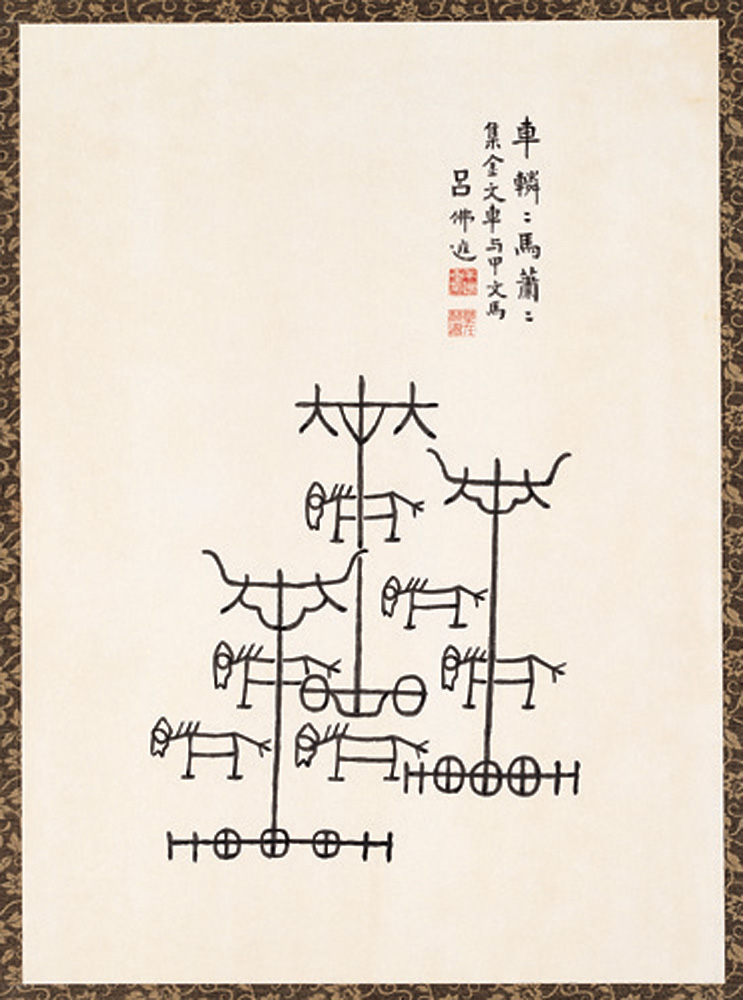 車轔：馬蕭：
集金文車与甲文馬
呂佛庭